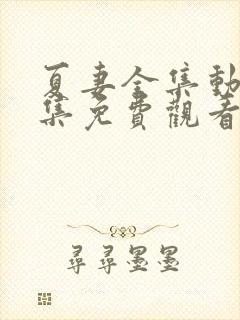 夏妻全集動
集免費觀看
尋尋墨墨